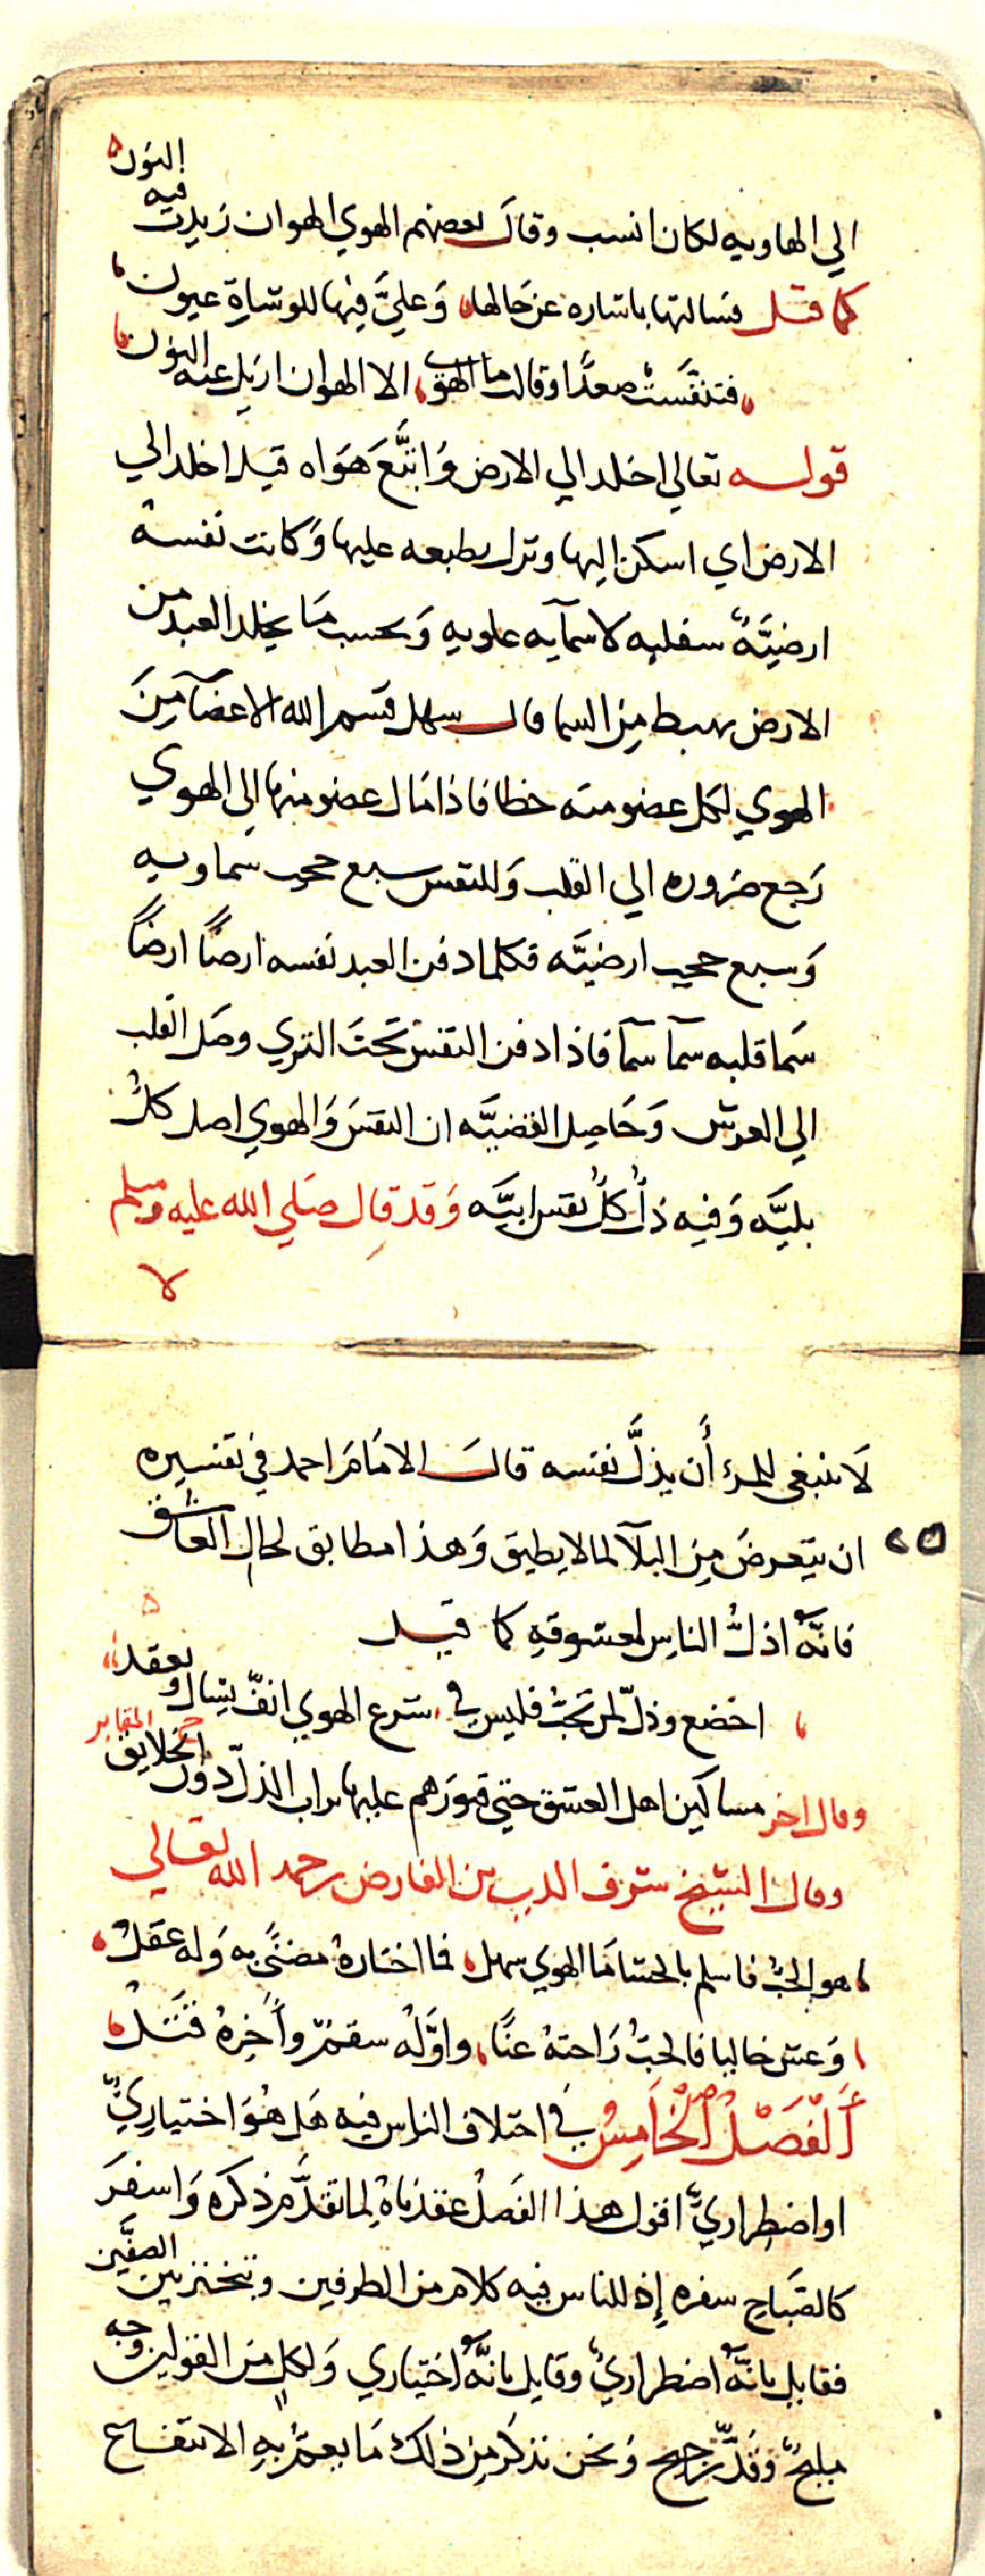 الي الهاويه لكان انسب وقال بعضهم الهوي الهوان زيدت فيه النون
كما قيل فسالتها باشاره عن حالها وَعليَّ فيها للوشاةِ عيون
فتنفسَت صعدًا وقالت ما الهوي الا الهوان ازيل عنه النون
قوله تعالي اخلد الي الارض وَاتَّبَعَ هَوَاه قيل اخلد الي
الارض اي اسكن اليها ونزل بطبعه عليها وَكانت نفسه
ارضيَّةً سفليه لا سمآيه علويه وَبحسب مَا يخلد العبد من
الارض يهبط مِن السما قال سهل قسم الله الاعضآ مِنَ
الهوي لكل عضو منه حظا فاذا مَال عضو منها الي الهوي
رَجع ضروره الي القلب وَللنفس سبع حجب سماويه
وَسبع حجب ارضيَّه فكلما دفن العبد نفسه ارضًا ارضًا
سَما قلبه سمآ سمآ فاذا دفن النفس تحتَ الثري وصَل القلب
الي العرش وَحَاصِل القضيَّه ان النفسَ وَالهوي اصل كلِّ
بليَّه وَفيه ذُلُّ كُلُّ نفس ابيَّه وَقد قال صَلي الله عليه وسلم
لا
لَا ينبغي للمرء أَن يذلَّ نفسه قال الامَامَ احمد في تفسيره
ان يتعرضَ مِن البلآ لما لا يطيق وَهذا مطابق لحال العاشق
٢٥
فانَّهُ اذلُّ الناسِ لمعشوقهِ كما قيل
اخضع وذلّ لمن تحبُّ فليس في شرع الهوي انفٌ يشال ويعقد
وقال اخر مساكين اهل العشق حتي قبورَهم عليها تراب الذلّ دون الخلايق
المقابر
وقال الشيخ شرف الدين بن الفارض رحمه الله تعالي
هو الحبُّ فاسلم بالحشا مَا الهوي سهل فما اختارهُ مضنًي به وَله عقلُ
وَعش خاليا فالحبُّ رَاحتهُ عنًا واوَّلهُ سقمٌ وأخِرهُ قَتْلُ
أَلْفَصْلُ الْخَامِسُ في اختلاف الناس فيه هَل هُوَ اختياريٌّ
او اضطراريٌّ اقول هذا الفَصلُ عقدنَاهُ لِما تقدَّم ذكره وَاسفرَ
كالصَباحِ سفره إِذ للناس فيه كلام من الطرفين وتبختر بين الصفَّين
فقايل بانَّهُ اضطراريٌ وقايل بانَّهُ اختياري وَلكلٍ مِن القولين وجه
مليحٌ وَقدٌّ رجيح وَنحن نذكر مِن ذلك مَا يعمُّ بهِ الانتفاع